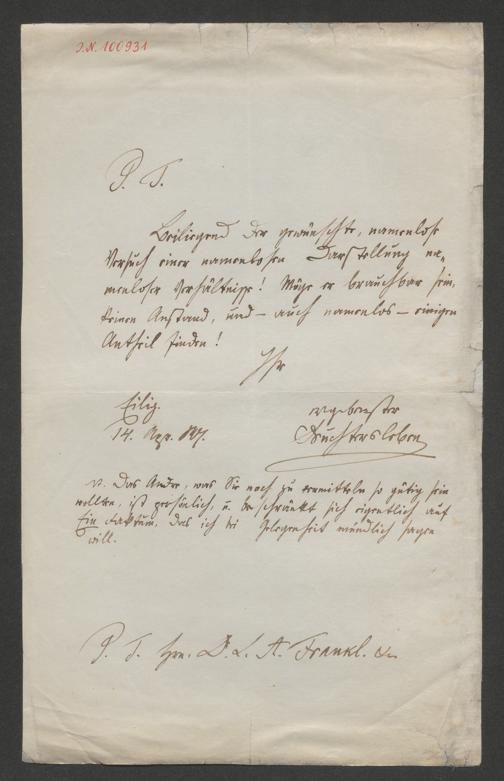 J.N. 100931
P. T.
Beiliegend der gewünschte, namenlose
Versuch einer namenlosen Darstellung na-
menloser Verhältnisse! Möge er brauchbar sein,
keinen Anstand, und – auch namenlos – einigen
Antheil finden!
Ihr
Eilig.
ergebenster
14. Apr. 847.
Feuchtersleben
Das Andre, was Sie noch zu vermitteln so gütig sein
wollten, ist persönlich, u. beschränkt sich eigentlich auf
Ein Faktum, das ich bei Gelegenheit mündlich sagen
will.
P. T. Hrn. D. L. A. Frankl. &c